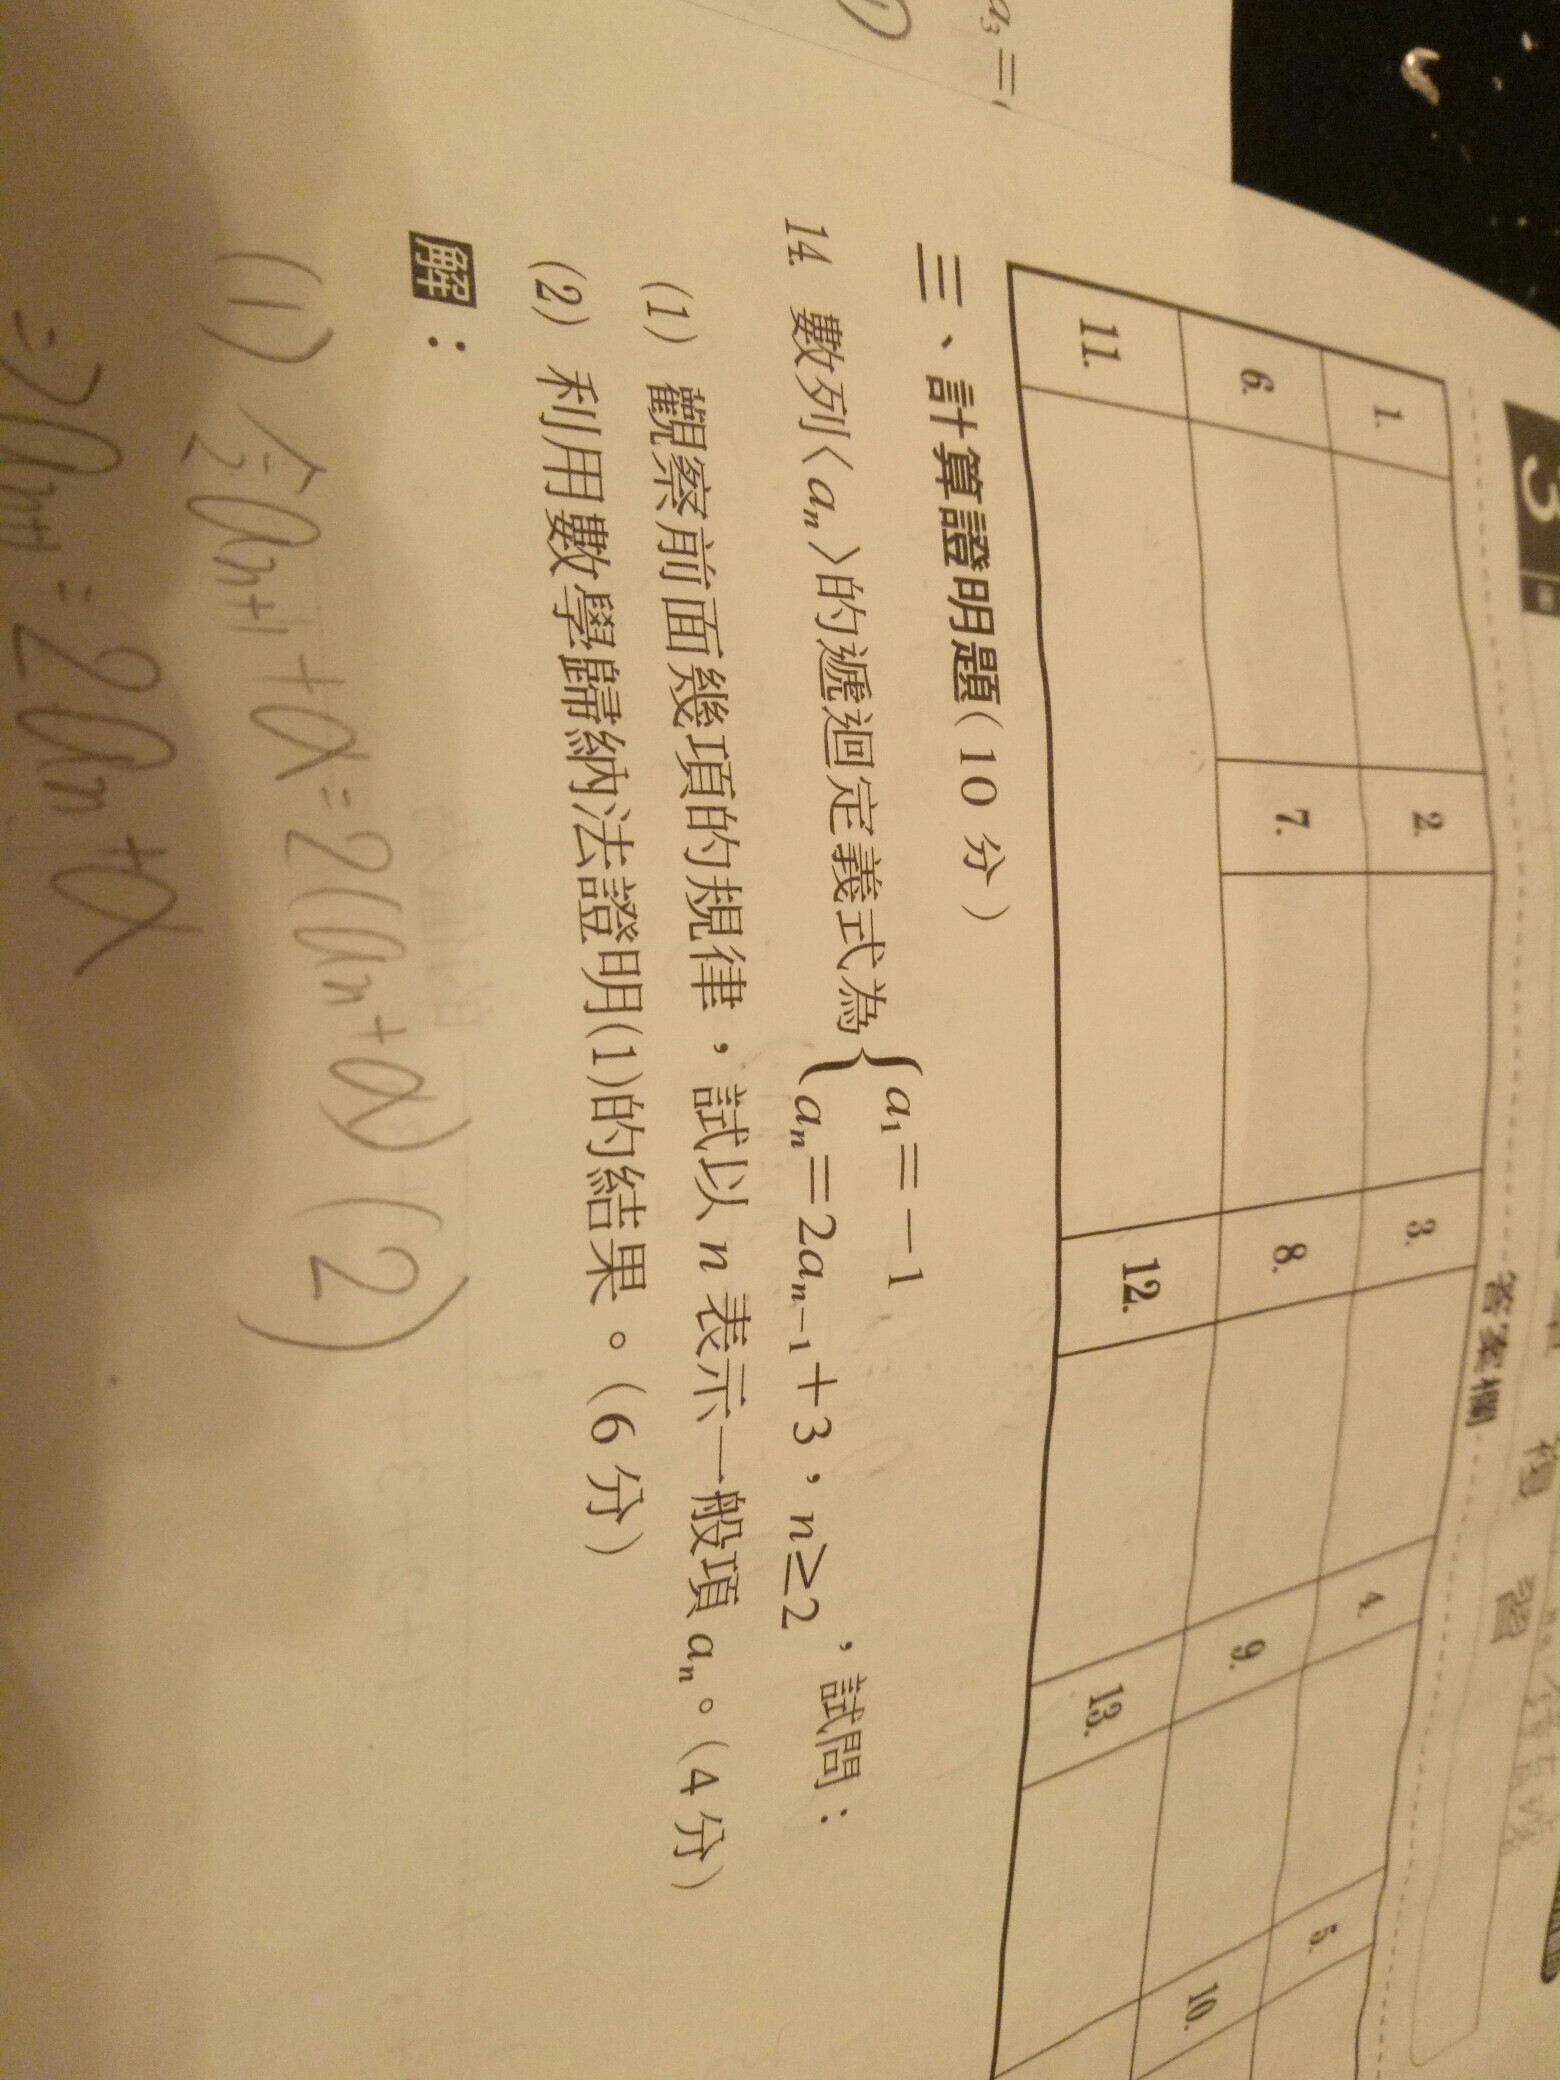 a₃=
3
答案欄
1.
2.
3.
4.
5.
6.
7.
8.
9.
10.
11.
12.
13.
三、計算證明題(10 分)
14. 數列〈aₙ〉的遞迴定義式為{a₁=-1
aₙ=2aₙ₋₁+3,n≥2,試問:
(1) 觀察前面幾項的規律,試以 n 表示一般項 aₙ。(4 分)
(2) 利用數學歸納法證明(1)的結果。(6 分)
解:
(1) 令aₙ₊₁+α=2(aₙ+α) (2)
⇒aₙ₊₁=2aₙ+α